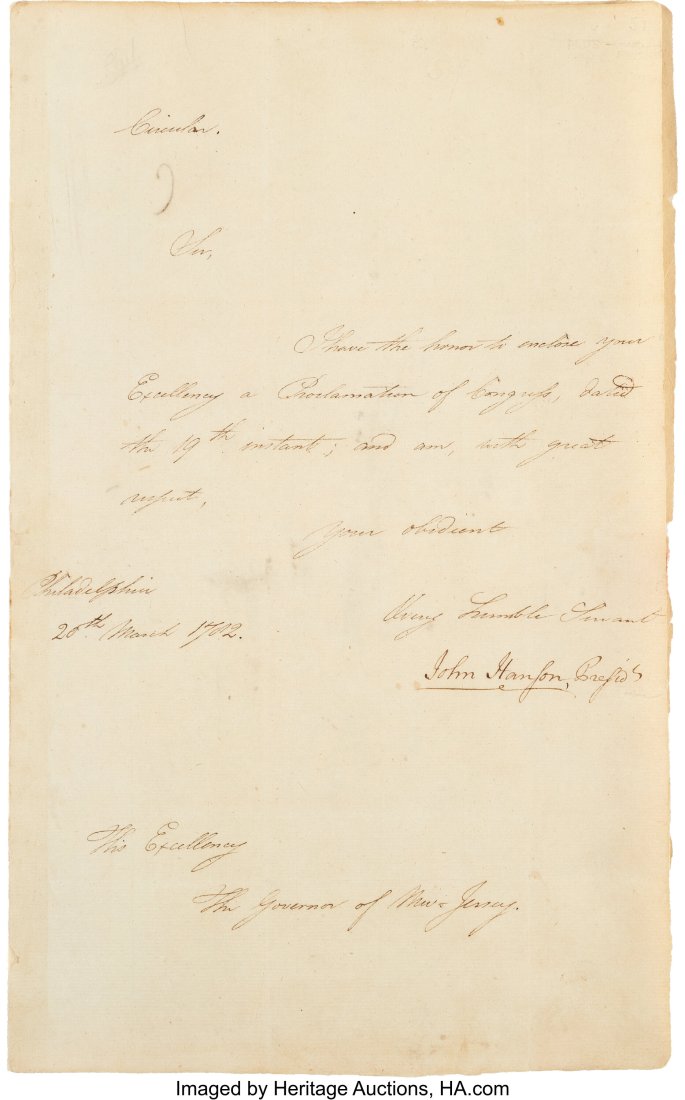 Circular.
Sir,
I have the honor to enclose your
Excellency a Proclamation of Congress, dated
the 19th instant; and am, with great
respect,
your obedient
Philadelphia
20th March 1782.
& very humble Servant
John Hanson, Presidt
His Excellency
The Governor of New-Jersey.
Imaged by Heritage Auctions, HA.com